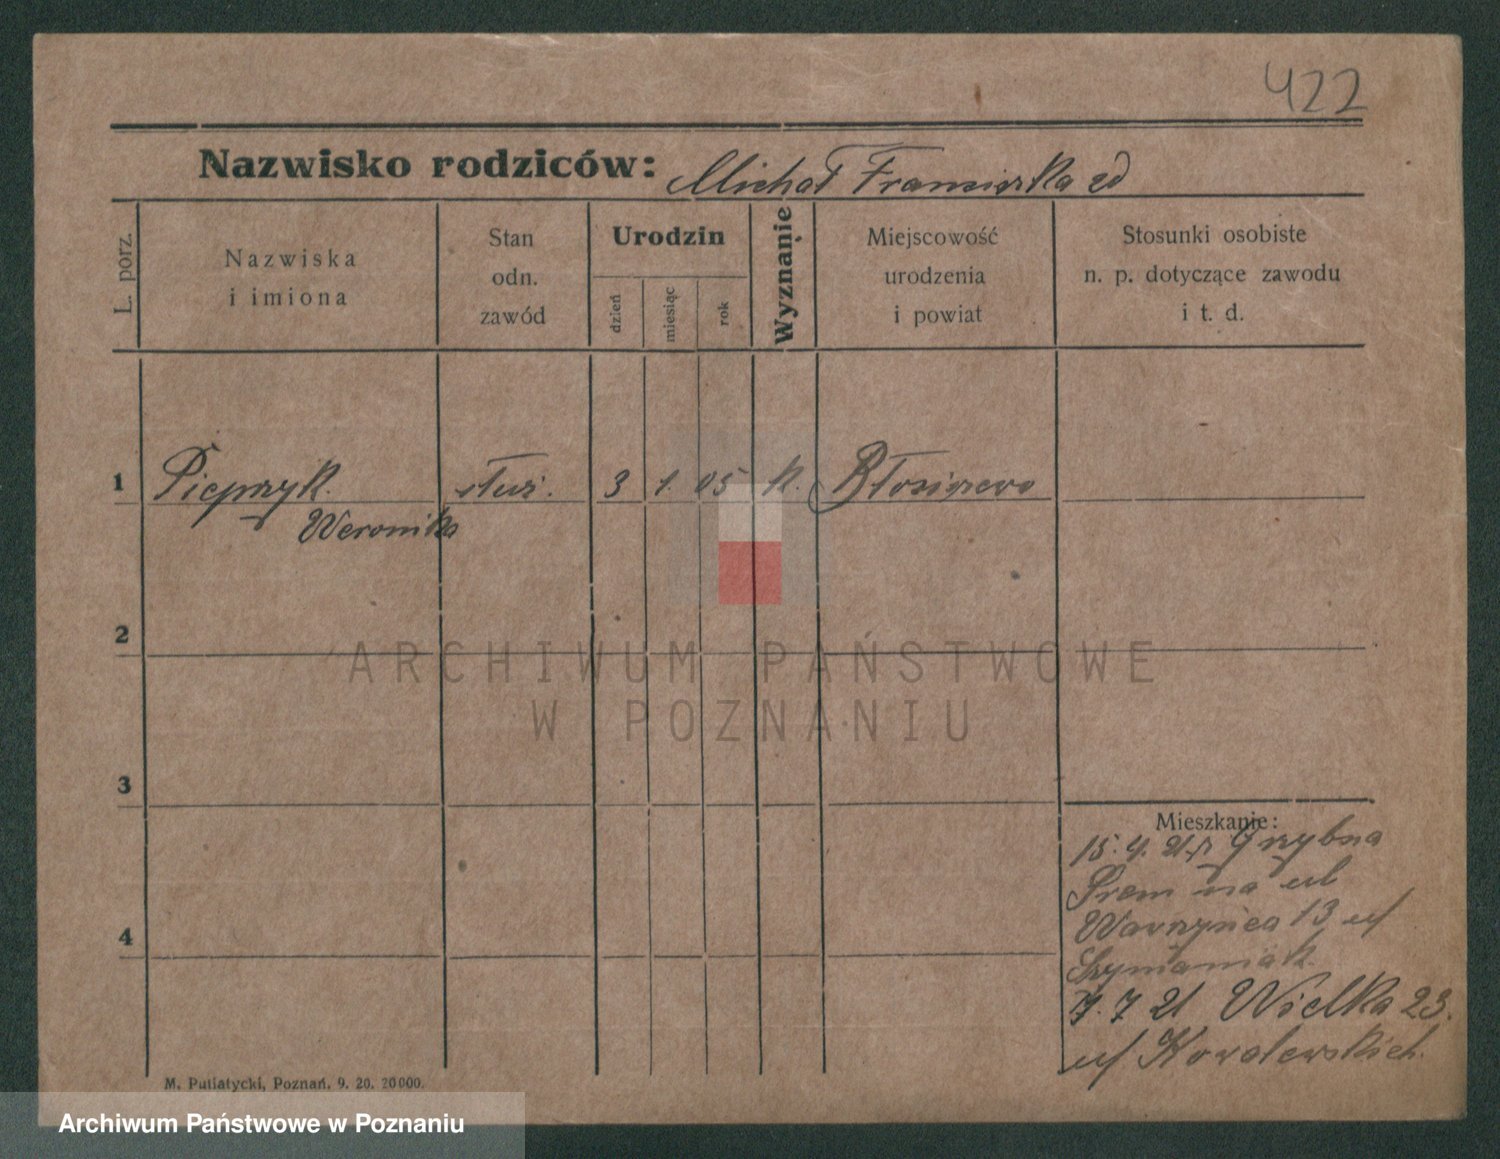 422
Nazwisko rodziców: Michał Franciszka zd
L. porz.
Nazwiska
i imiona
Stan
odn.
zawód
Urodzin
dzień
miesiąc
rok
Wyznanie
Miejscowość
urodzenia
i powiat
Stosunki osobiste
n. p. dotyczące zawodu
i t. d.
1 Pieprzyk. służ. 3 1. 05 k.
Weronika
2
3
4
Mieszkanie:
15. 4. 21 Grzybna
Śrem na ul
Wawrzyńca 13 u/
Szymaniak.
7. 7 21 Wielka 23.
u/ Kowalewskich.
M. Putiatycki, Poznań. 9. 20. 20000.
ARCHIWUM PAŃSTWOWE
W POZNANIU
Archiwum Państwowe w Poznaniu